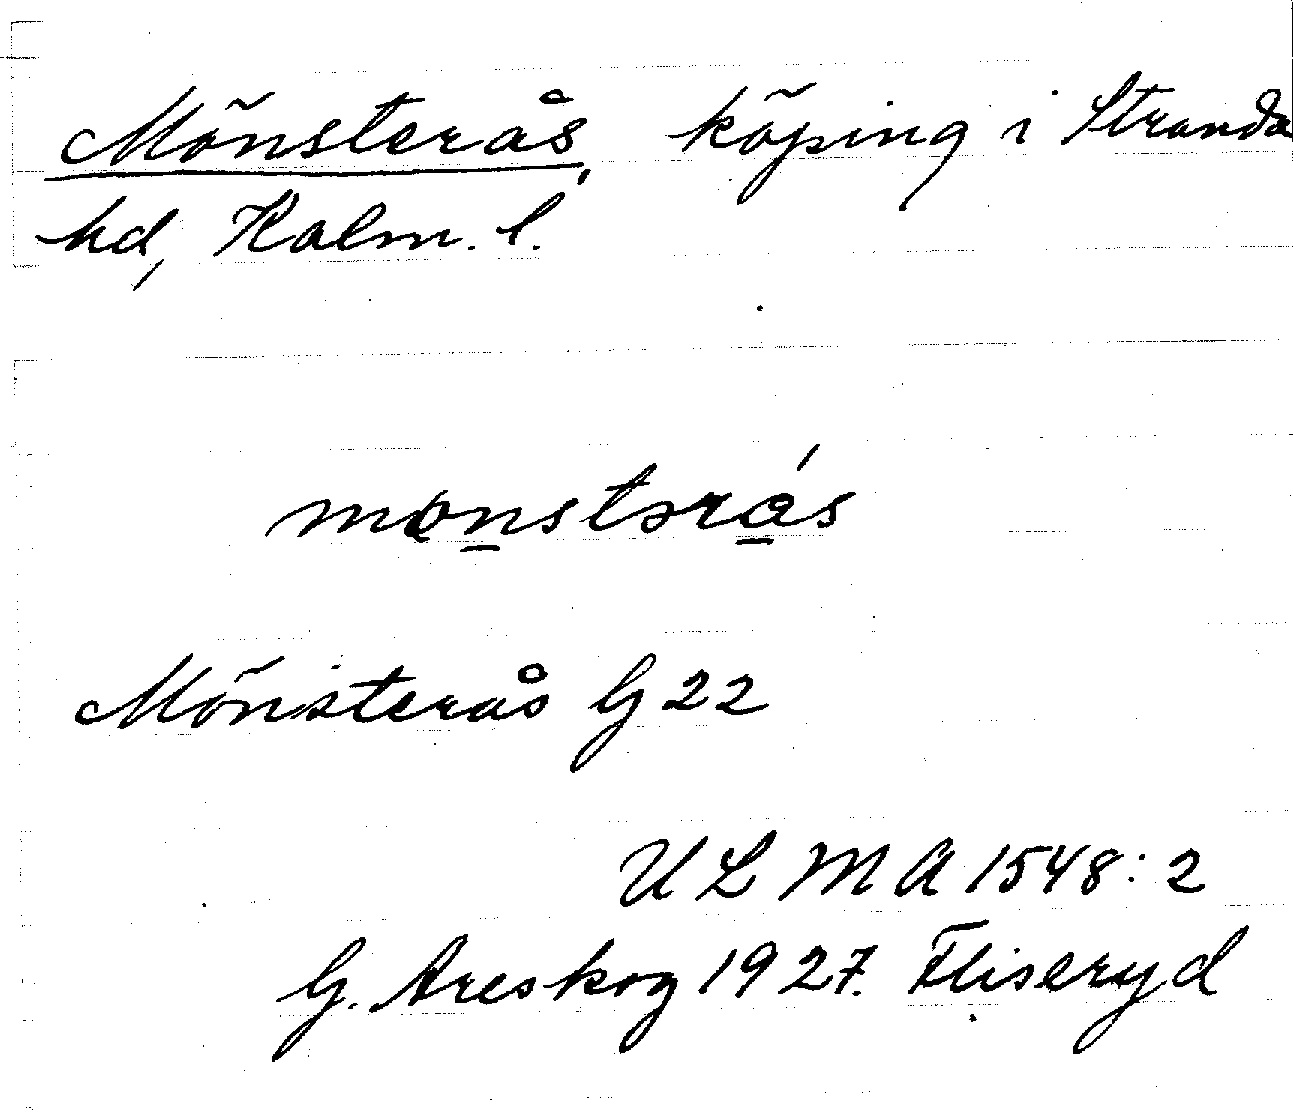 Mönsterås, köping i Stranda
hd, Kalm. l.
mønstərás
Mönsterås G 22
ULMA 1548:2
G. Areskog 1927. Fliseryd